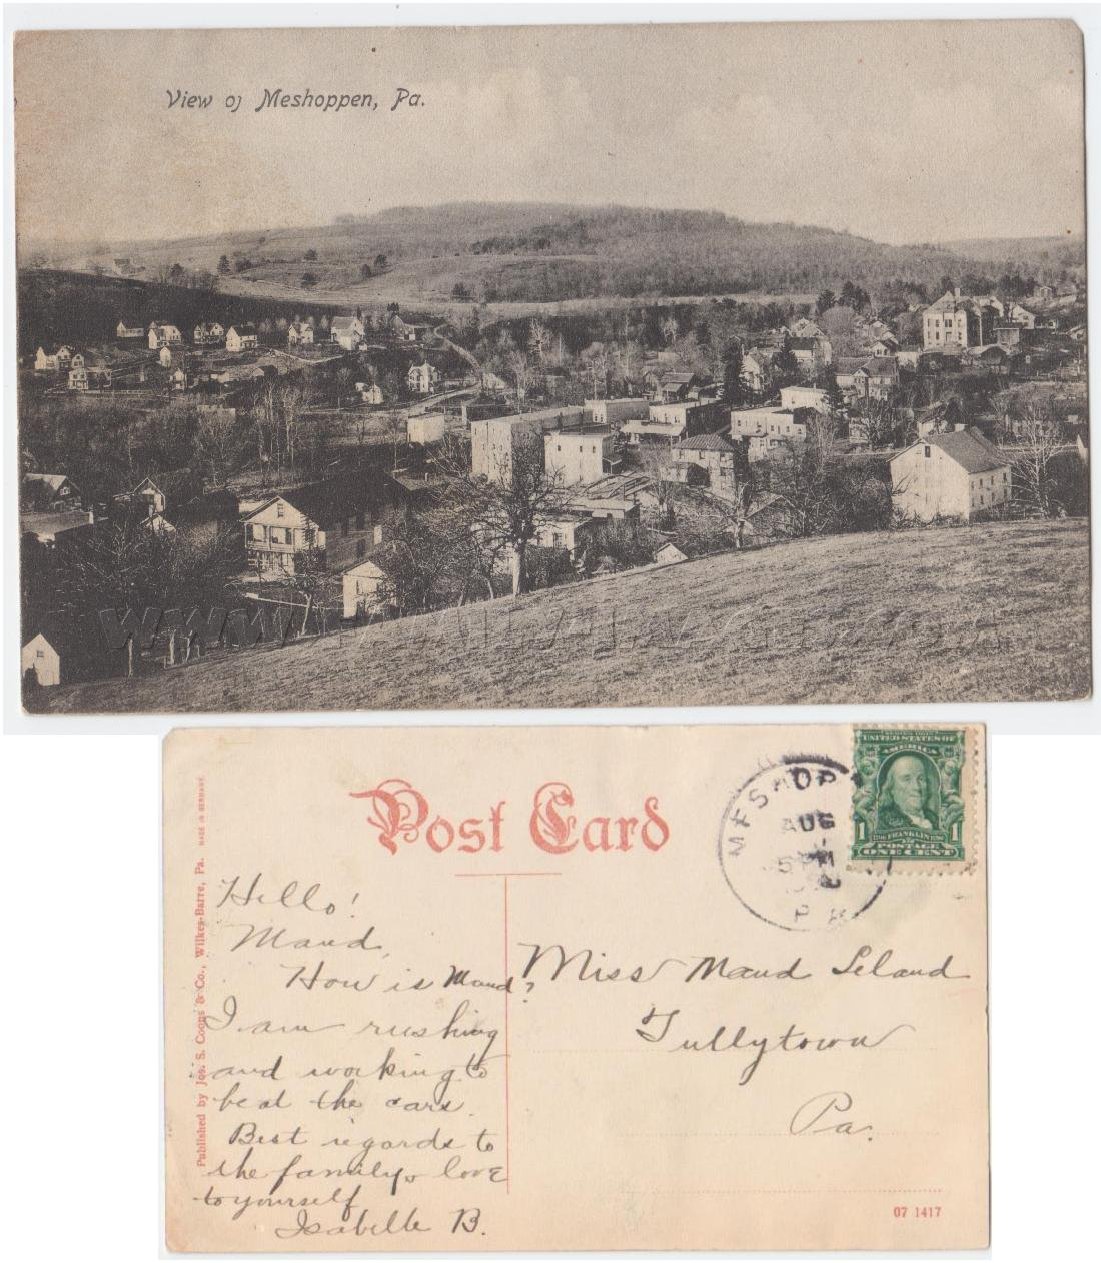 View of Meshoppen, Pa.
Post Card
MESHOP
AUG
5 PM
UNITED STATES OF
AMERICA
1 FRANKLIN 1
POSTAGE
ONE CENT
Published by Jos. S. Coons & Co., Wilkes-Barre, Pa. MADE IN GERMANY
Hello!
Maud,
How is Maud?
I am rushing
and working to
beat the cars.
Best regards to
the family & love
to yourself
Isabelle B.
Miss Maud Leland
Tullytown
Pa.
07 1417